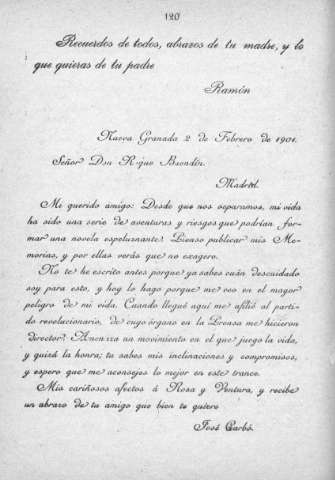 120
Recuerdos de todos, abrazos de tu madre, y lo
que quieras de tu padre
Ramón
Nueva Granada 2 de Febrero de 1901.
Señor Don Roque Buendía.
Madrid.
Mi querido amigo: Desde que nos separamos, mi vida
ha sido una serie de aventuras y riesgos que podrían for-
mar una novela espeluznante. Pienso publicar mis Me-
morias, y por ellas verás que no exagero.
No te he escrito antes porque ya sabes cuán descuidado
soy para esto, y hoy lo hago porque me veo en el mayor
peligro de mi vida. Cuando llegué aquí me afilié al parti-
do revolucionario, de cuyo órgano en la Prensa me hicieron
director. Amenaza un movimiento en el que juego la vida,
y quizá la honra; tu sabes mis inclinaciones y compromisos,
y espero que me aconsejes lo mejor en este trance.
Mis cariñosos afectos á Rosa y Ventura, y recibe
un abrazo de tu amigo que bien te quiere
José Carbó.